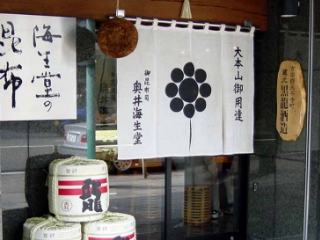 海生堂の
昆布
大本山御用達
御昆布司
奥井海生堂
黒龍酒造
龍